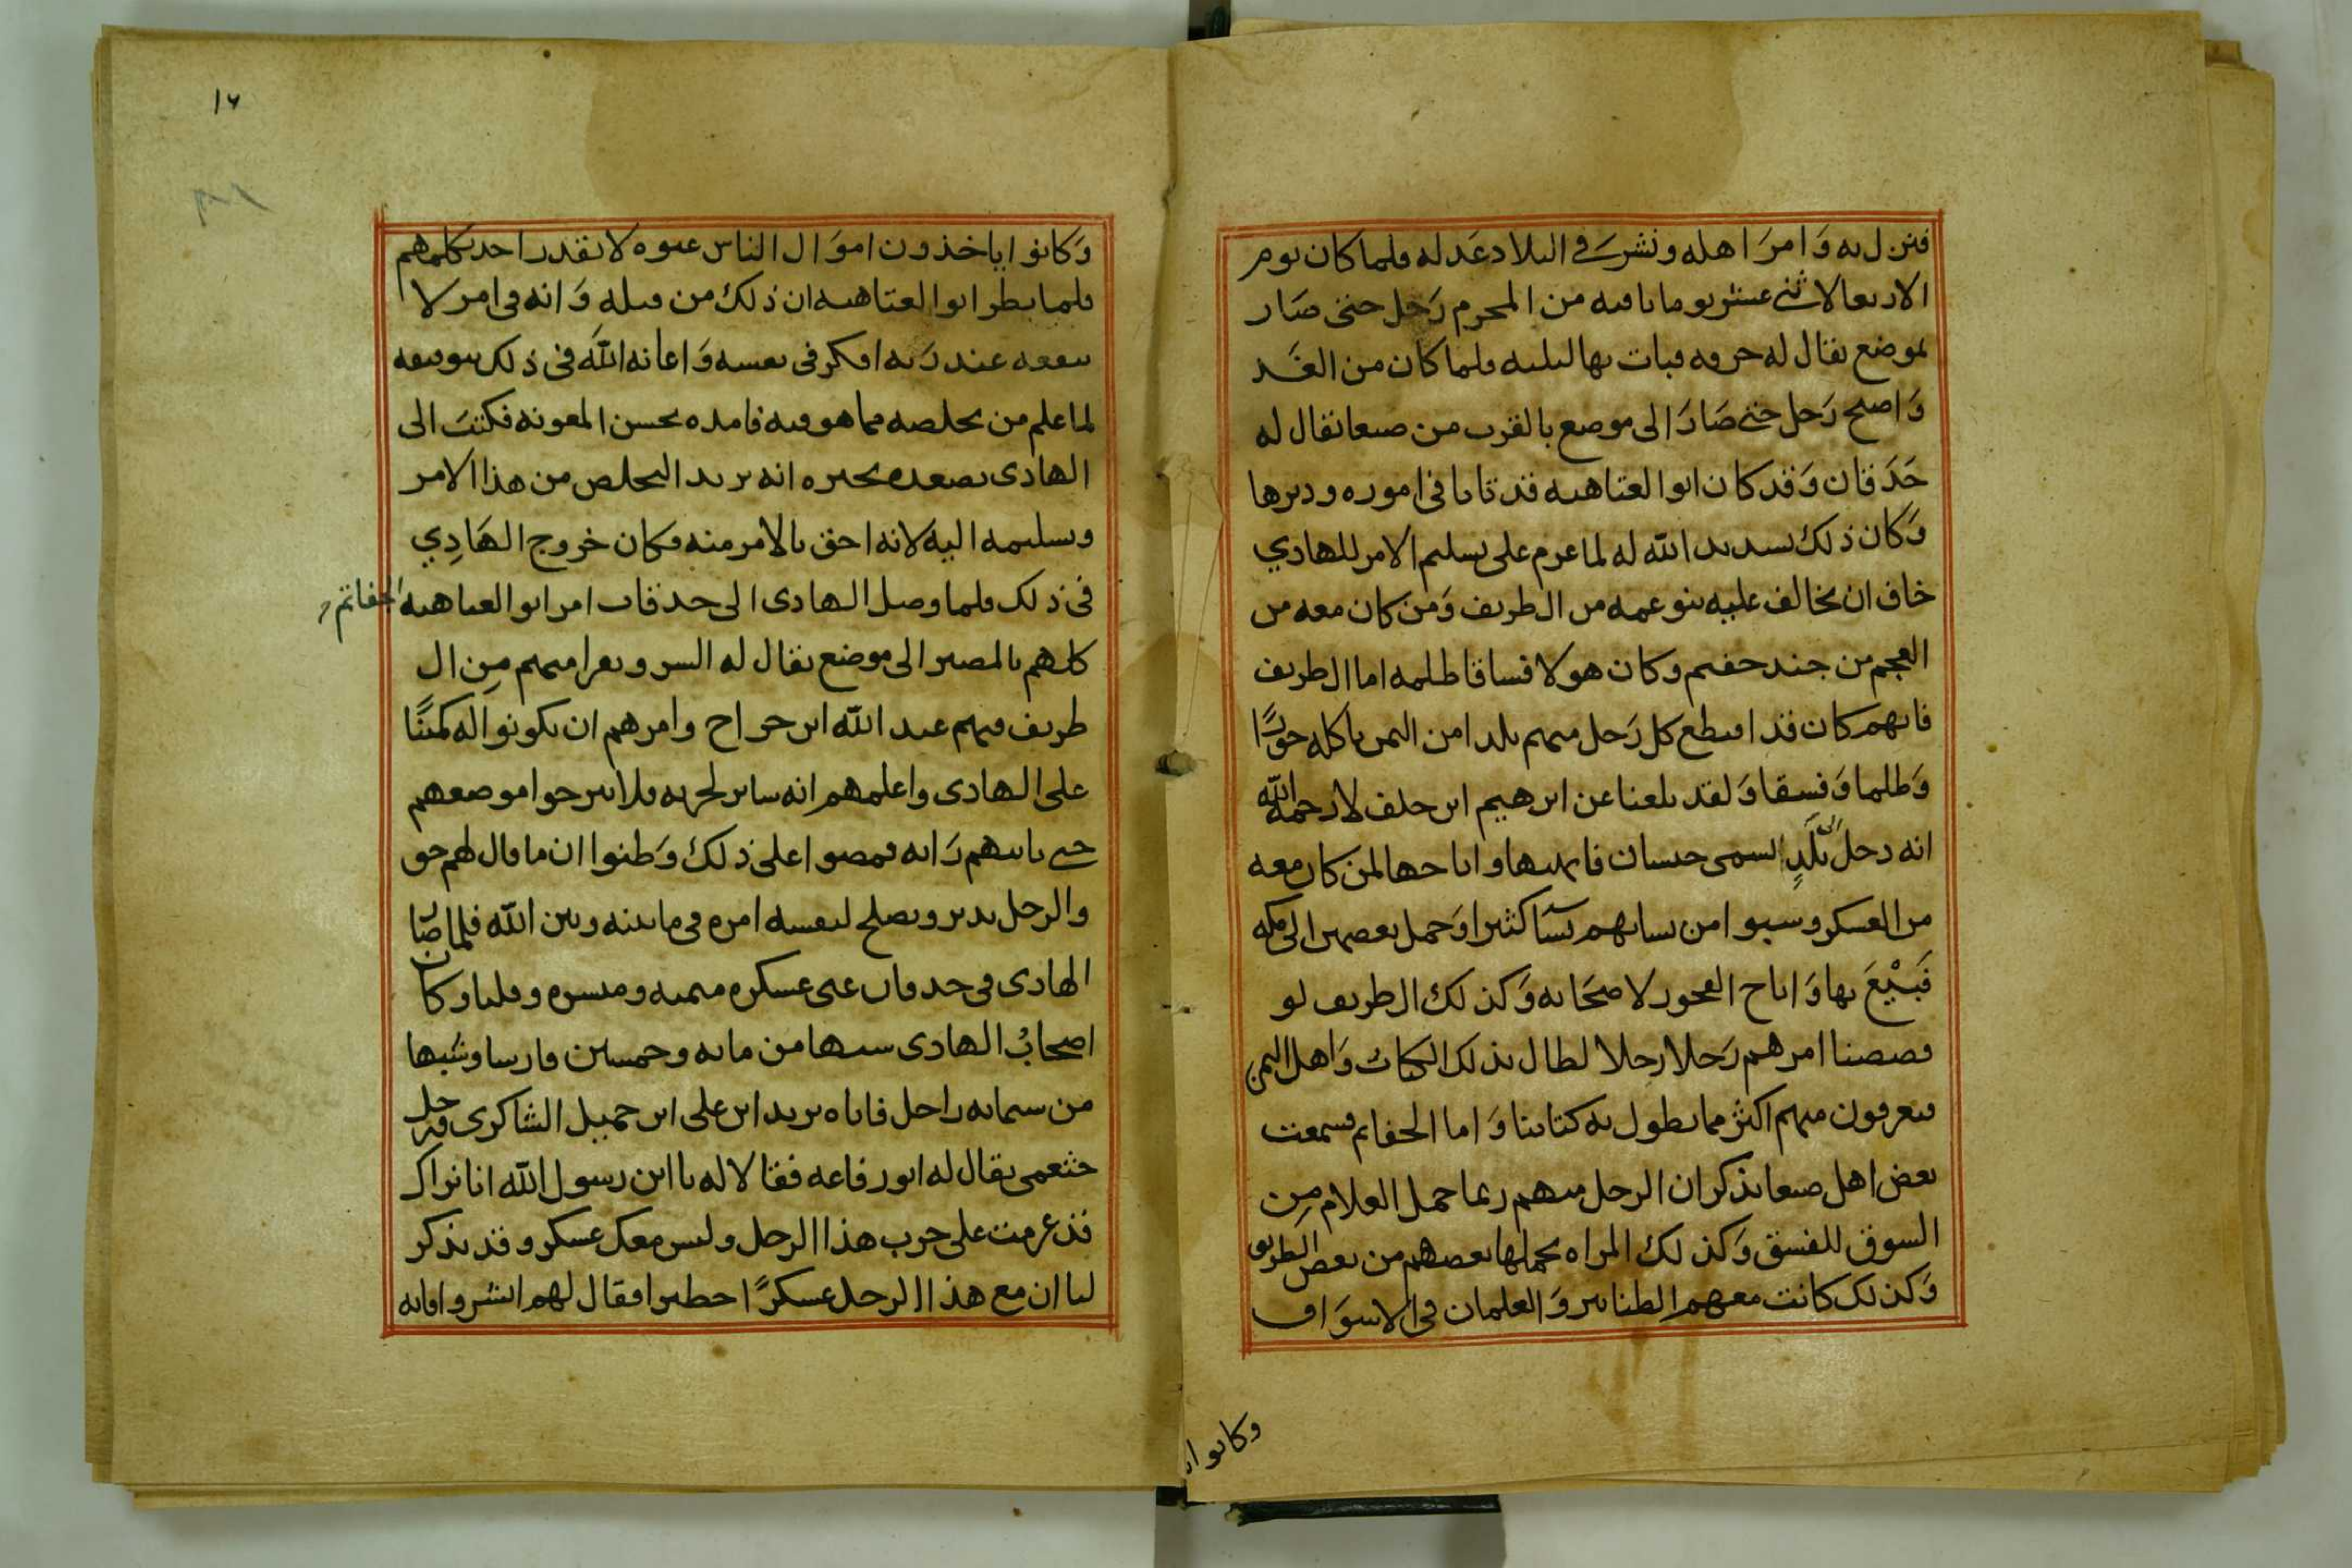 فنزل به وَامرَ اهله ونشرَ في البلاد عَدله فلما كان يوم
الاربعا لاثني عشر يوما باقيه من المحرم رَحل حتى صَار
لموضع يقال له حروه فبات بها ليلته فلما كان من الغَد
وَاصبح رَحل حتى صَارَ الى موضع بالقرب من صنعا يقال له
حَدَقان وَقد كان ابو العتاهيه قد تانا في اموره ودبرها
وَكان ذلك تسديد الله له لما عزم على تسليم الامر للهادي
خاف ان يخالف عليه بنو عمه من ال طريف وَمن كان معه من
العجم من جند حفتم وكان هولا فساقا ظلمه اما ال طريف
فانهم كان قد اقتطع كل رَجل منهم بلدا من اليمن ياكله جوْرًا
وَظلما وَفسقا وَلقد بلغنا عن ابرهيم ابن خلف لا رحمه الله
انه دخل بَلَدٍ السمى حيسان فانهبها واباحها لمن كان معه
من العسكر وسبوا من نسايهم نسآ كثيرا وَحمل بعضهن الى مكه
فَبيْعَ بها وَاباح الفجور لاصحَابه وَكذلك ال طريف لو
قصصنا امرهم رَجلا رجلا لطال بذلك الكتاب وَاهل اليمن
يعرفون منهم اكثر مما يطول به كتابنا وَاما الحفاتم فسمعت
بعض اهل صنعا يذكر ان الرجل منهم ربما حمل الغلام مِن
السوق للفسق وَكذلك المراه يحملها بعضهم من بعض الطريق
وَكذلك كانت معهم الطنابير وَالغلمان في الاسوَاق
وكانوا
١٦
وَكانوا ياخذون اموَال الناس عنوه لا يقدر احد يكلمهم
فلما نظر ابو العتاهيه ان ذلك من قبله وَانه في امر لا
ينفعه عند رَبه افكر في نفسه وَاعانه الله في ذلك بتوفيقه
لما علم من تخلصه مما هو فيه فامده بحسن المعونه فكتبَ الى
الهادي بصعده يخبره انه يريد التخلص من هذا الامر
وتسليمه اليه لانه احق بالامر منه فكان خروج الهَادِي
في ذلك فلما وصل الهادى الى حدقان امر ابو العتاهيه الحفاتم
كلهم بالمصير الى موضع يقال له السر وبعرا منهم مِن ال
طريف فيهم عبد الله ابن جراح وامرهم ان يكونوا له كمينًا
على الهادى واعلمهم انه ساير لحربه فلا يبرحوا موضعهم
حتى ياتيهم رَايه فمضوا على ذلك وَظنوا ان ما قال لهم حق
والرجل يدبر ويصلح لنفسه امره في ما بينه وبين الله فلما صَار
الهادى في حدقان عبى عسكره ميمنه وميسره وقلبا وكان
اصحابُ الهادى شبيها من مايه وخمسين فارسا وشبيها
من ستمايه راجل فاتاه يزيد ابن على ابن حميل الشاكرى ورجل
خثعمى يقال له ابو رفاعه فقالا له يا ابن رسول الله انا نراك
قد عزمت على حرب هذا الرجل وليس معك عسكر وقد يذكر
لنا ان مع هذا الرجل عسكرًا خطيرا فقال لهم ابشروا فانه